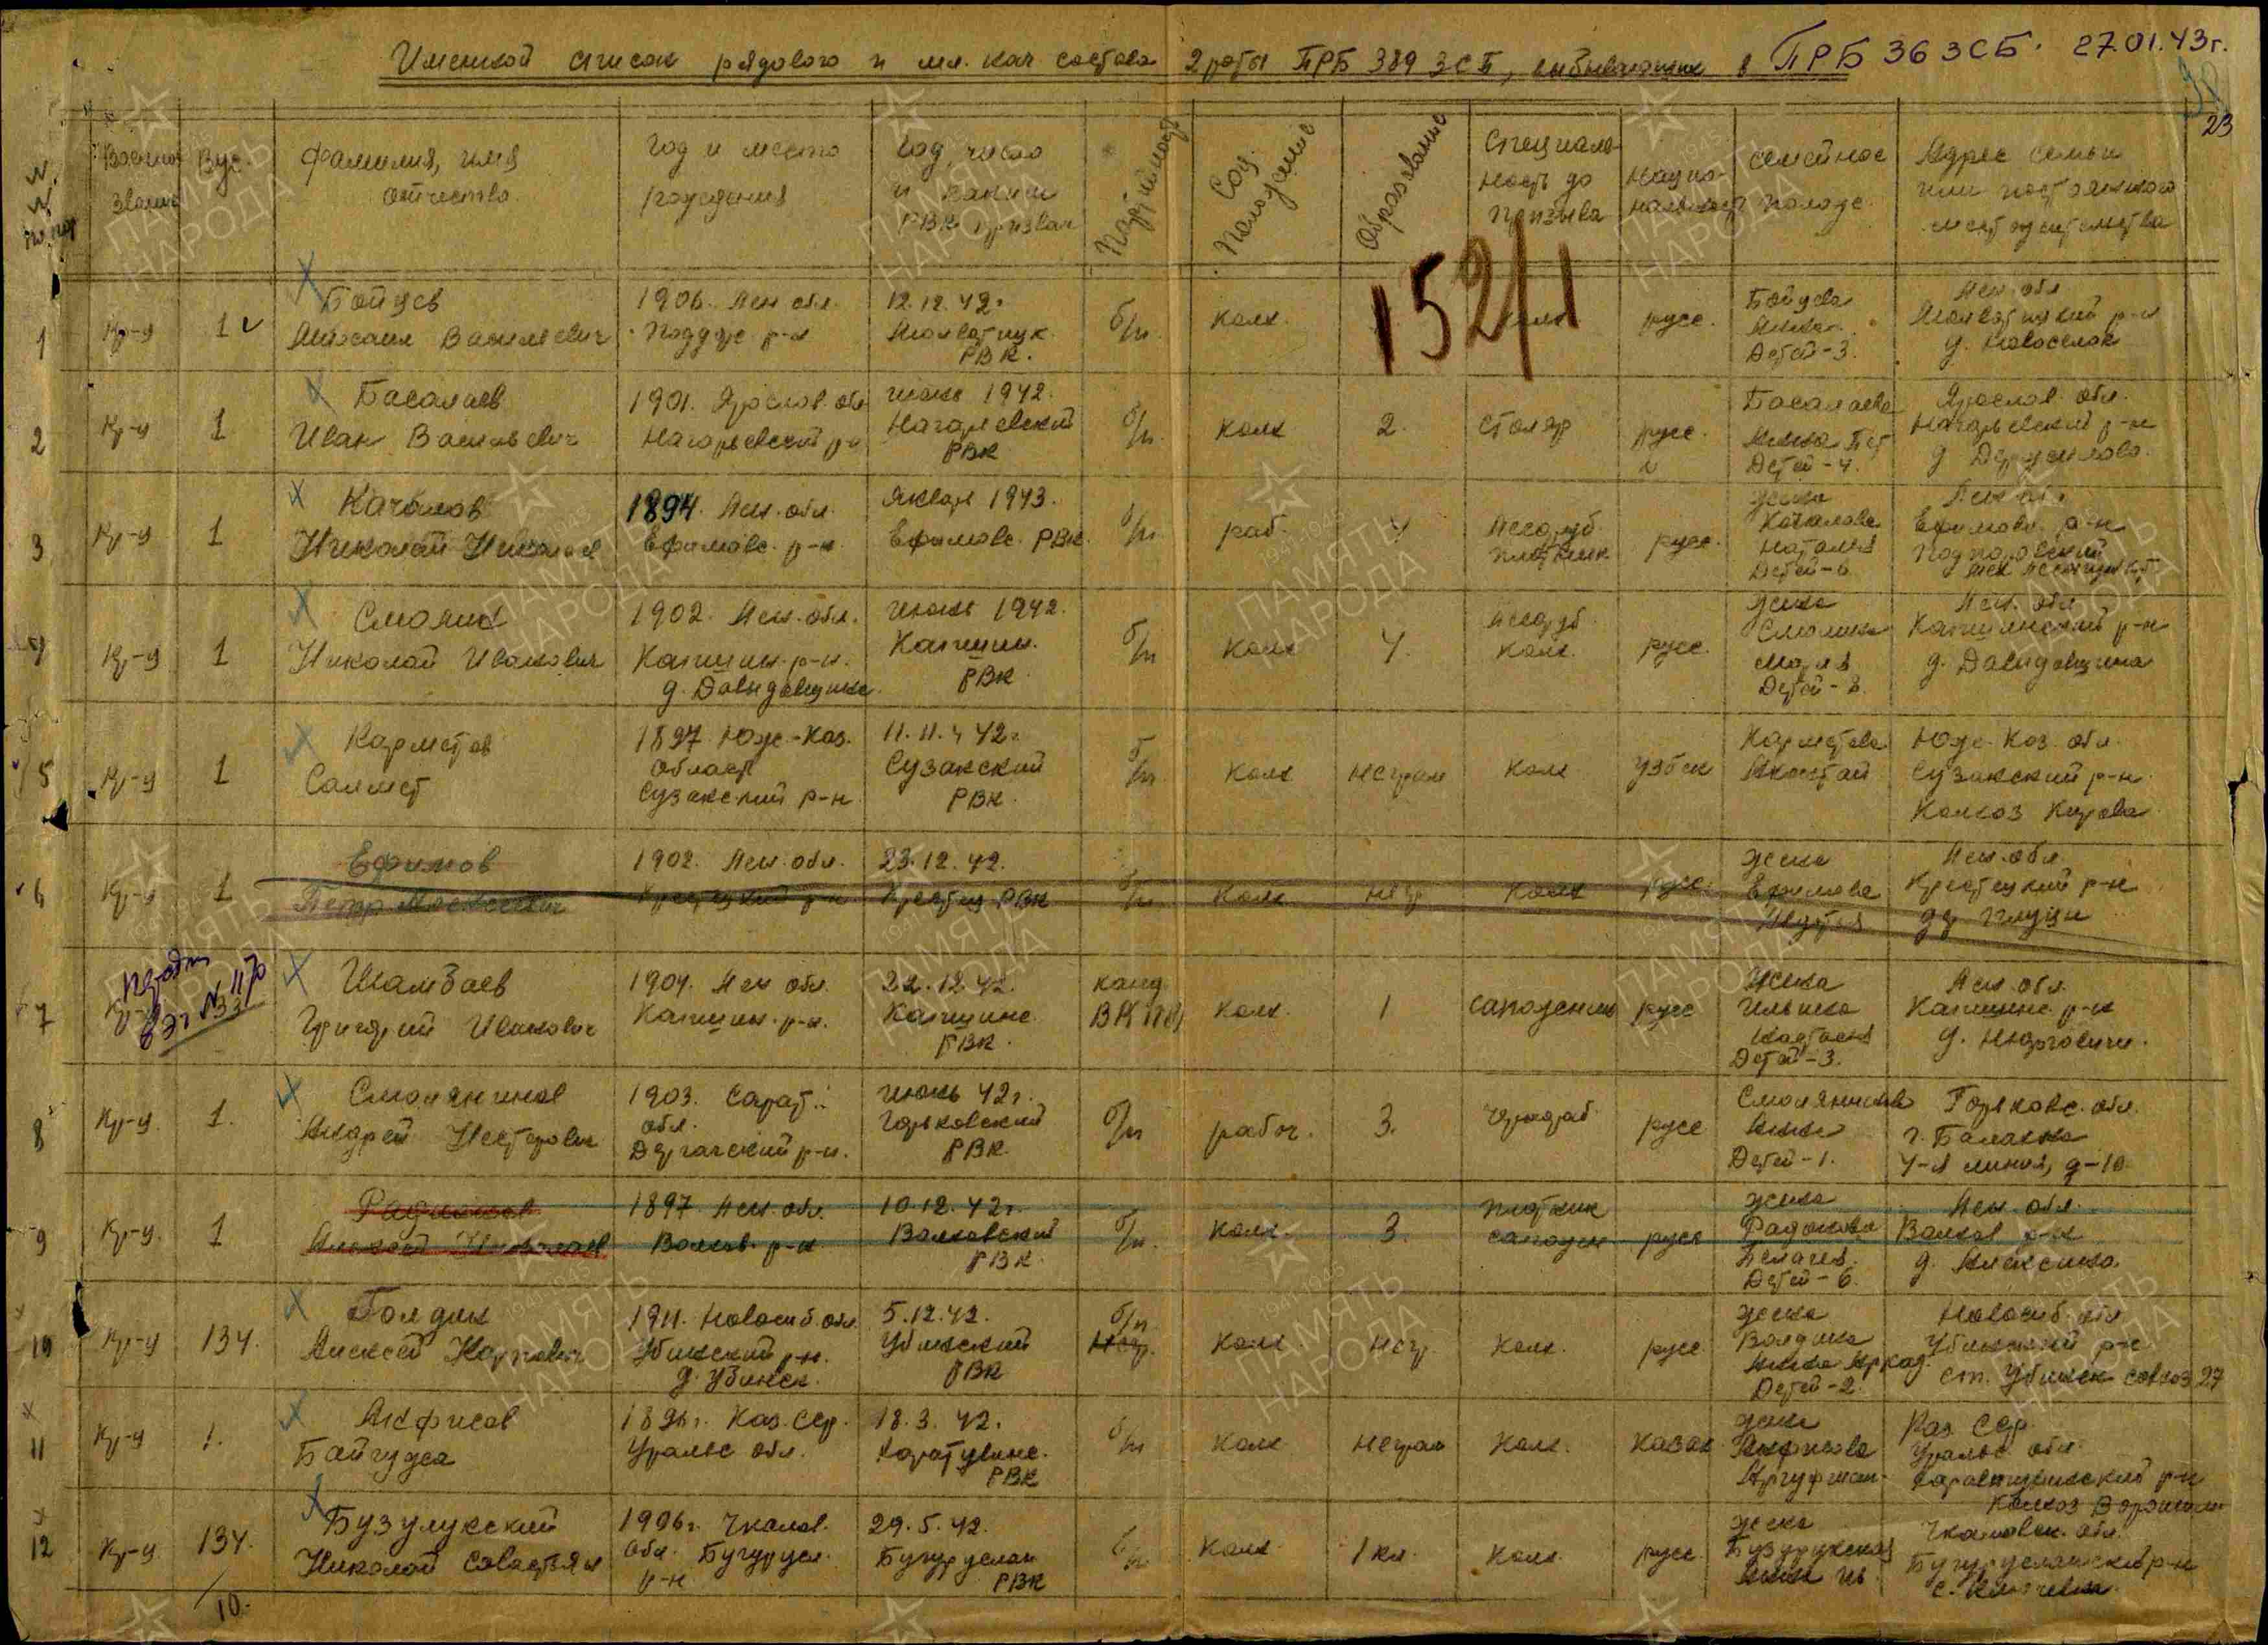 Именной список рядового и мл. нач состава 2 роты ПРБ 389 ЗСП, выбывающих в ПРБ 36 ЗСБ. 27.01.43г.
23
№ №
Военное звание
Вус.
Фамилия, имя отчество
Год и место рождения
Год, число и каким РВК призван
Партийность
Соц. положение
Образование
Специальность до призыва
Националь-ность
Семейное полож.
Адрес семьи или постоянного местожительства
152/1
1 Кр-ц 1
Бойцев
Михаил Васильевич
1906. Лен обл.
р-н
12.12.42г.
Молвотицк РВК.
б/п.
колх.
русс.
Бойцева
Анна
Детей-3.
Лен. обл
Молвотицкий р-н
д. Новоселок
2 Кр-ц 1
Басалаев
Иван Васильевич
1901. Ярослав. обл
Нагорьевский р-н
июнь 1942.
Нагорьевский
РВК
б/п.
колх
2.
столяр
русс.
Басалаева
Анна Пет
Детей-4.
Ярослав. обл.
Нагорьевский р-н
3 Кр-ц 1
Качалов
Николай Николаев
1894. Лен. обл.
Ефимовс. р-н.
Январь 1943.
Ефимовс. РВК.
б/п
раб.
4
Лесоруб
плотник
русс.
жена
Качалова
Наталья
Детей-
Лен обл.
Ефимовс. р-н
4 Кр-ц 1
Смолин
Николай Иванович
1902. Лен. обл.
Капшин. р-н.
д. Давыдовщина.
июнь 1942.
Капшин.
РВК
б/п
колх
4.
Лесоруб
колх.
русс.
жена
Смолина
Мария
Детей-
Лен. обл
Капшинский р-н
д. Давыдовщина
5 Кр-ц 1
Карметов
Саммет
1897. Юж.-Каз.
область
Сузакский р-н
11.11.42г.
Сузакский
РВК.
б/п
колх
неграм
колх
узбек
Карметова
Юж. Каз. обл.
Сузакский р-н.
Колхоз Кирова
6 Кр-ц 1
Ефимов
Петр Алексеевич
1902. Лен. обл.
Крестецкий р-н
23.12.42.
Крестец РВК
б/п
колх
негр
колх
русс.
жена
Ефимова
Лен. обл
Крестецкий р-н
7
Шамбаев
Григорий Иванович
1904. Лен обл.
Капшин. р-н.
22.12.42.
Капшинс.
РВК.
канд
ВКП(б)
колх.
1
сапожник
русс
жена
Детей-3.
Лен. обл.
Капшинс. р-н
8 Кр-ц. 1.
Смолянинов
Андрей Нестерович
1903. Сарат.
обл.
Дергачский р-н.
июнь 42г.
Горьковский
РВК.
б/п
рабоч.
3.
русс
Смолянинова
Анна
Детей-1.
Горьковс. обл.
г. Балахна
4-я линия, д-10.
9 Кр-ц. 1
Радионов
Алексей Николаев
1897 Лен. обл.
Волхов. р-н
10.12.42г.
Волховский
РВК.
б/п.
колх.
3.
плотник
сапожн
русс
жена
Радионова
Пелагея.
Детей-6.
Лен. обл.
Волхов р-н
д. Алексино.
10 Кр-ц 134.
Голдин
Алексей Карпович
1911. Новосиб. обл
Убинский р-н.
д. Убинск.
5.12.42.
Убинский
РВК
б/п
колх.
негр
колх.
русс
жена
Анна Аркад.
Детей-2.
Новосиб. обл
Убинский р-н.
ст. Убинск совхоз 27
11 Кр-ц 1.
Анфисов
1896г. Каз. ССр.
Уральс обл.
18.3.42.
РВК
б/п
колх
неграм
колх.
казах
жена
Анфисова
Каз. ССр.
Уральс. обл.
12 Кр-ц 134.
Бузулукский
Николай Савастьян
1906г. Чкалов.
обл. Бугурусл.
р-н
29.5.42.
Бугуруслан
РВК
б/п
колх
1 кл.
колх.
русс.
жена
Бузулукская
Анна Ив.
Чкаловск. обл.
Бугурусланский р-н
с. Ключевка.
10.
ПАМЯТЬ НАРОДА
1941-1945